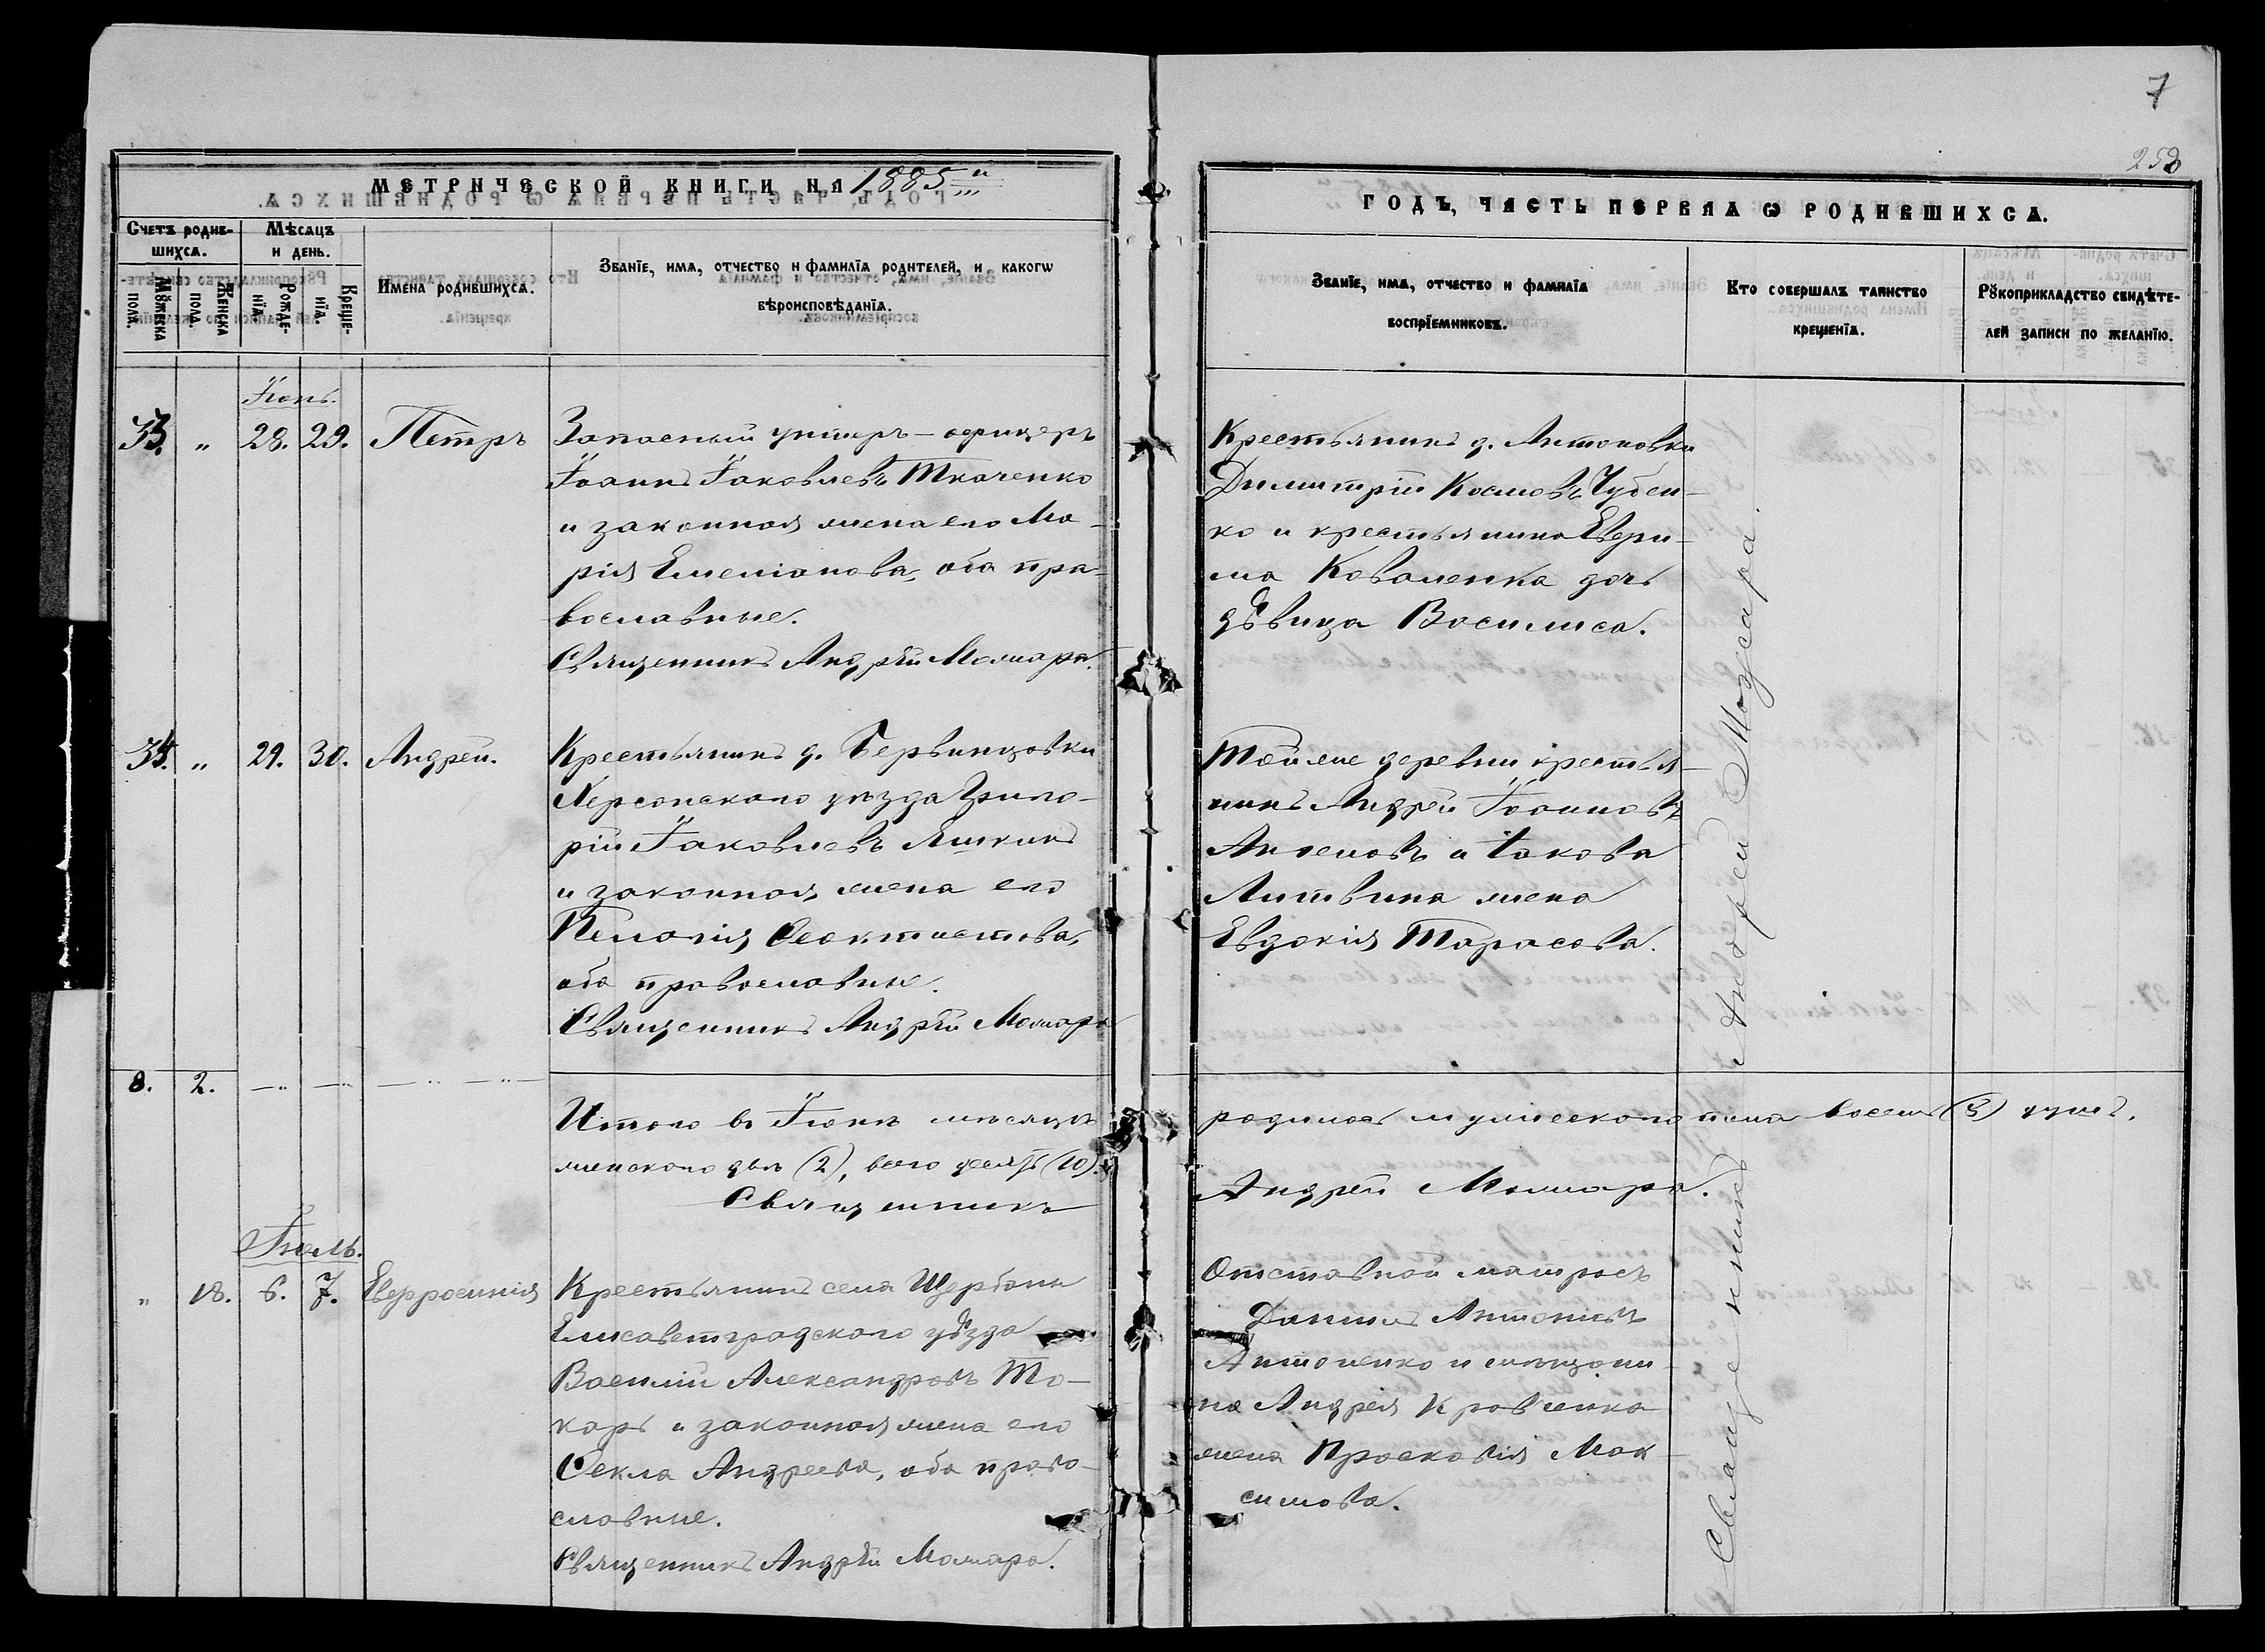 7
258
МЕТРИЧЕСКОЙ КНИГИ НА 1885й
ГОДЪ, ЧАСТЬ ПЕРВАЯ Ѡ РОДИВШИХСѦ.
Счетъ родившихсѧ.
Мꙋжеска пола.
Женска пола.
Мѣсѧцъ и день.
Рожденїѧ.
Крещенїѧ.
Имена родившихсѧ.
Званїе, имѧ, отчество и фамилїѧ родителей, и какогѡ
вѣроисповѣданїѧ.
Званїе, имѧ, отчество и фамилїѧ
воспрїемниковъ.
Кто совершалъ таинство
крещенїѧ.
Рꙋкоприкладство свидѣте-
лей записи по желанїю.
Іюнь.
33. " 28. 29. Петръ
Запасный унтеръ-офицеръ
Іоаннъ Іаковлевъ Ткаченко
и законная жена его Ма-
рія Емеліанова, оба пра-
вославные.
Священникъ Андрей Можара.
Крестьянинъ д. Антоновки
Димитрій Космовъ Чубен-
ко и крестьянина Ефри-
ма Коваленка дочь
дѣвица Василиса.
34. " 29. 30. Андрей.
Крестьянинъ д.
Херсонскаго уѣзда Григо-
рій Іаковлевъ Яшкинъ
и законная жена его
Пелагія Ѳеоктистова,
оба православные.
Священникъ Андрей Можара
Той же деревни крестья-
нинъ Андрей Іоанновъ
и Іакова
Литвина жена
Евдокія Тарасова.
8. 2.
Итого въ Іюнѣ мѣсяцѣ родилось мужескаго пола восемь (8) душъ.
женскаго двѣ (2), всего десять (10).
Священникъ Андрей Можара.
Іюль.
" 18. 6. 7. Евфросинія
Крестьянинъ села Щербани
Елисаветградскаго уѣзда
Василій Александровъ То-
карь и законная жена его
Ѳекла Андреева, оба право-
славные.
Священникъ Андрей Можара.
Отставной матросъ
Даніилъ Антоніевъ
Антоненко и мѣщани-
на Андрея Кравченка
жена Парасковія Мак-
симова.
Священникъ Андрей Можара.